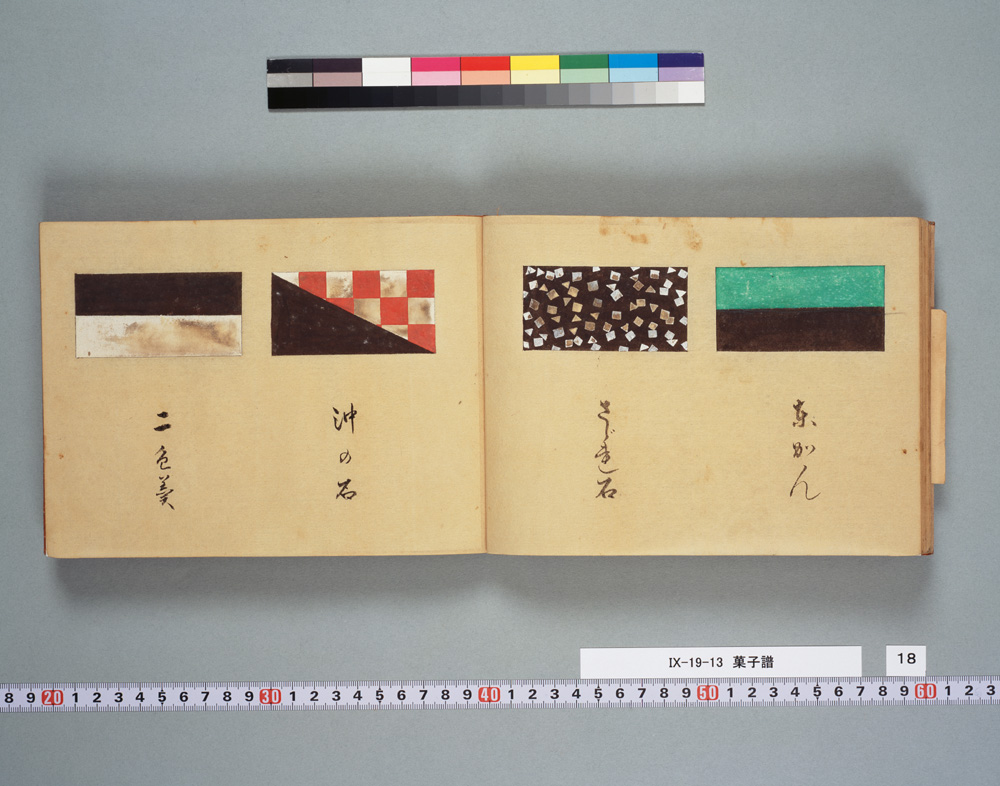 東かん
さゞれ石
沖の石
二色羹
IX-19-13 菓子譜
18
8 9 20 1 2 3 4 5 6 7 8 9 30 1 2 3 4 5 6 7 8 9 40 1 2 3 4 5 6 7 8 9 50 1 2 3 4 5 6 7 8 9 60 1 2 3